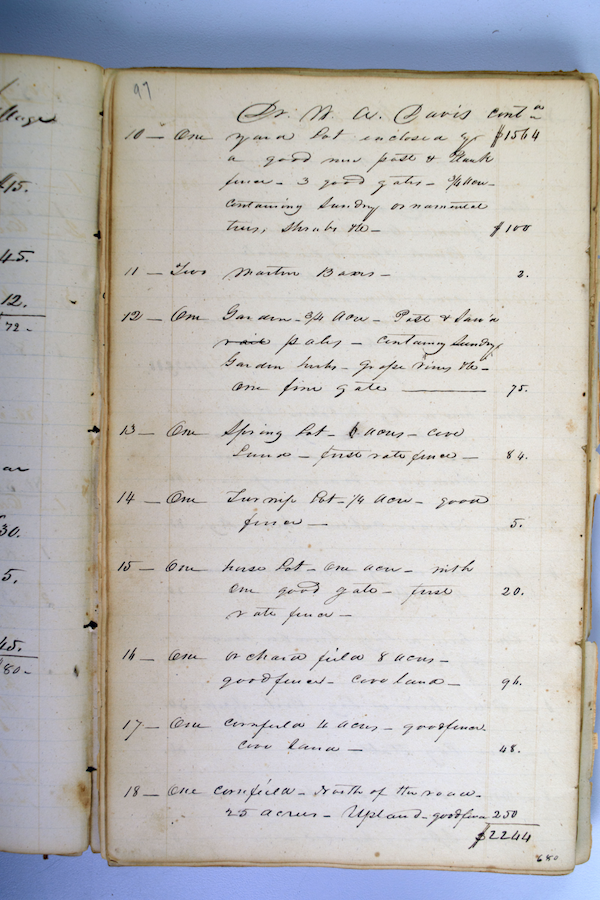 llage
15.
45.
12.
72-
ar
30.
5.
45.
80-
97
Dr. W. A. Davis contd
10 — One yard lot enclosed by $1564
a good new post & Plank
fence - 3 good gates - 3/4 Acre -
containing Sundry ornamental
trees, Shrubs &c - $100
11 — Two Martin Boxes - 2.
12 — One Garden - 3/4 Acre - Post & Saw'd
pales - containing Sundry
Garden herbs - grape vines &c -
One fine gate — 75.
13 — One Spring Lot - 6 acres - cove
Land - first rate fence - 84.
14 — One Turnip Lot - 1/4 Acre - good
fence - 5.
15 — One horse Lot - One acre - with
One good gate - first 20.
rate fence -
16 — One orchard field 8 acres -
good fence - cove land - 96.
17 — One cornfield 4 acres - good fence
cove land - 48.
18 — One cornfield - North of the road -
25 acres - Upland - good fence 250
$2244
680